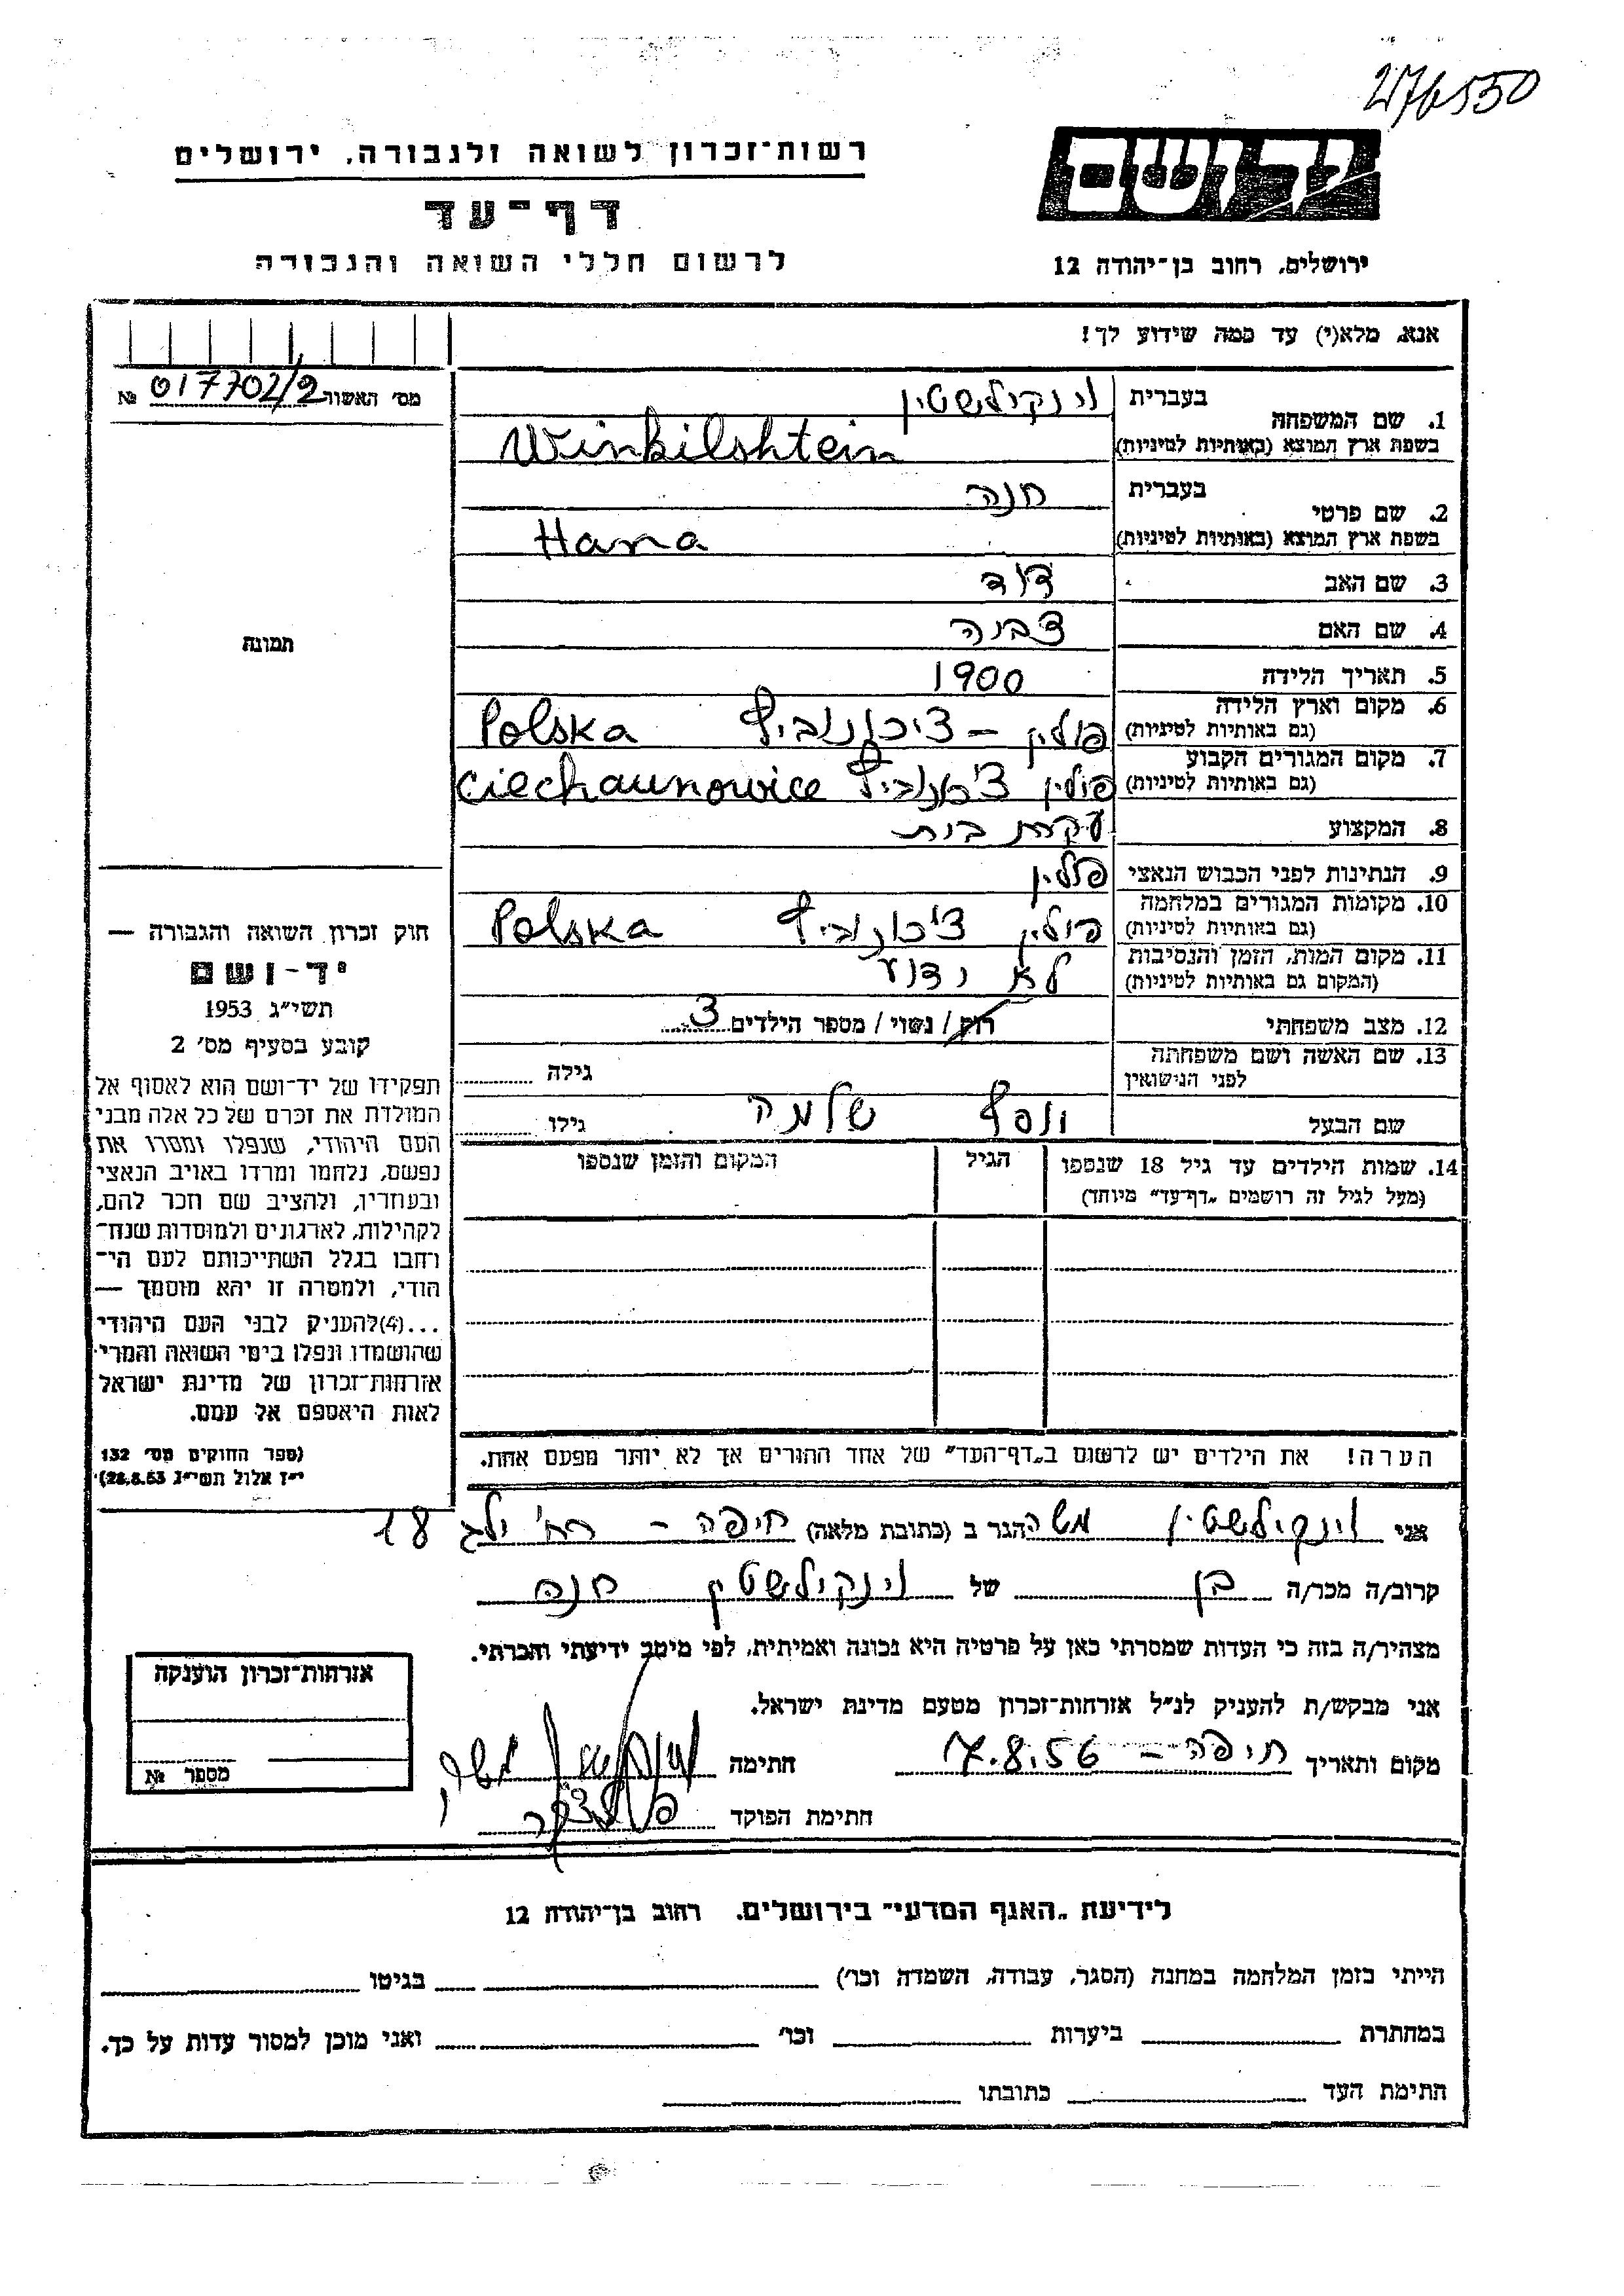 276550
רשות־זכרון לשואה ולגבורה, ירושלים
דף־עד
לרשום חללי השואה והגבורה
יד ושם
ירושלים, רחוב בן־יהודה 12
אנא, מלא(י) עד כמה שידוע לך!
מס' האשור 017702/2 №
1. שם המשפחה בעברית וינקילשטין
בשפת ארץ המוצא (באותיות לטיניות) Winkilshtein
2. שם פרטי בעברית חנה
בשפת ארץ המוצא (באותיות לטיניות) Hana
3. שם האב דוד
4. שם האם
5. תאריך הלידה 1900
6. מקום וארץ הלידה (גם באותיות לטיניות) פולין – ציכנוביץ Polska
7. מקום המגורים הקבוע (גם באותיות לטיניות) פולין ציכנוביץ Ciechaunowice
8. המקצוע עקרת בית
9. הנתינות לפני הכבוש הנאצי פולין
10. מקומות המגורים במלחמה (גם באותיות לטיניות) פולין ציכנוביץ Polska
11. מקום המות, הזמן והנסיבות (המקום גם באותיות לטיניות) לא ידוע
12. מצב משפחתי רוק / נשוי / מספר הילדים 3
13. שם האשה ושם משפחתה לפני הנישואין גילה
שם הבעל שלמה גילו
14. שמות הילדים עד גיל 18 שנספו הגיל המקום והזמן שנספו
(מעל לגיל זה רושמים „דף־עד" מיוחד)
הערה! את הילדים יש לרשום ב„דף־העד" של אחד ההורים אך לא יותר מפעם אחת.
תמונה
חוק זכרון השואה והגבורה —
יד-ושם
תשי״ג 1953
קובע בסעיף מס' 2
תפקידו של יד־ושם הוא לאסוף אל
המולדת את זכרם של כל אלה מבני
העם היהודי, שנפלו ומסרו את
נפשם, נלחמו ומרדו באויב הנאצי
ובעוזריו, ולהציב שם וזכר להם,
לקהילות, לארגונים ולמוסדות שנח־
רבו בגלל השתייכותם לעם הי־
הודי, ולמטרה זו יהא מוסמך —
...(4)להעניק לבני העם היהודי
שהושמדו ונפלו בימי השואה והמרי
אזרחות־זכרון של מדינת ישראל
לאות היאספם אל עמם.
(ספר החוקים מס' 132
י״ז אלול תשי״ג 28.8.53)
אני וינקילשטין משה הגר ב (כתובת מלאה) חיפה – רח' יל״ג 18
קרוב/ה מכר/ה בן של וינקילשטין חנה
מצהיר/ה בזה כי העדות שמסרתי כאן על פרטיה היא נכונה ואמיתית, לפי מיטב ידיעתי והכרתי.
אני מבקש/ת להעניק לנ״ל אזרחות־זכרון מטעם מדינת ישראל.
מקום ותאריך חיפה – 7.8.56 חתימה
חתימת הפוקד
אזרחות־זכרון הוענקה
מספר №
לידיעת „האגף המדעי" בירושלים. רחוב בן־יהודה 12
הייתי בזמן המלחמה במחנה (הסגר, עבודה, השמדה וכו') בגיטו
במחתרת ביערות וכו' ואני מוכן למסור עדות על כך.
חתימת העד כתובתו